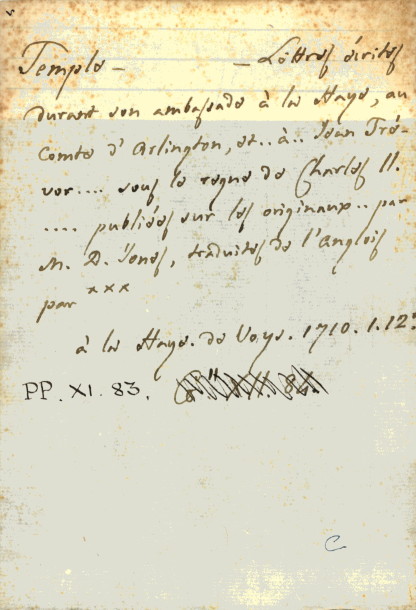 Temple — — Lettres écrites
durant son ambassade à la Haye, au
Comte d'Arlington, et..à.. Jean Tré-
vor.... sous le regne de Charles II.
.... publiées sur les originaux.. par
M. D. Jones, traduites de l'Anglois
par xxx
à la Haye. de Voys. 1710. 1.12º
PP. XI. 83.
C